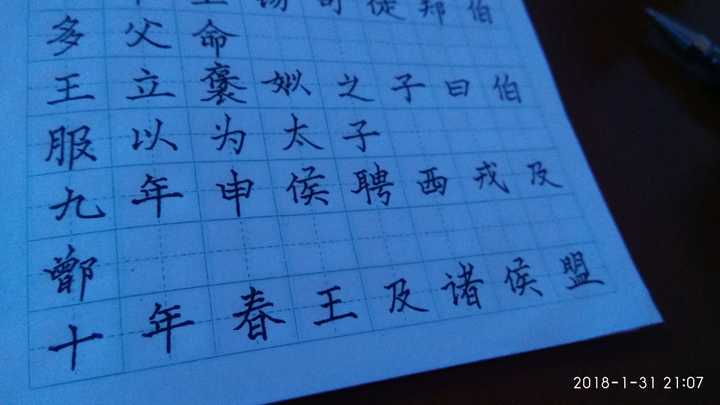 王锡司徒郑伯
多父命
王立褒姒之子曰伯
服以为太子
九年申侯聘西戎及
鄫
十年春王及诸侯盟
2018-1-31 21:07